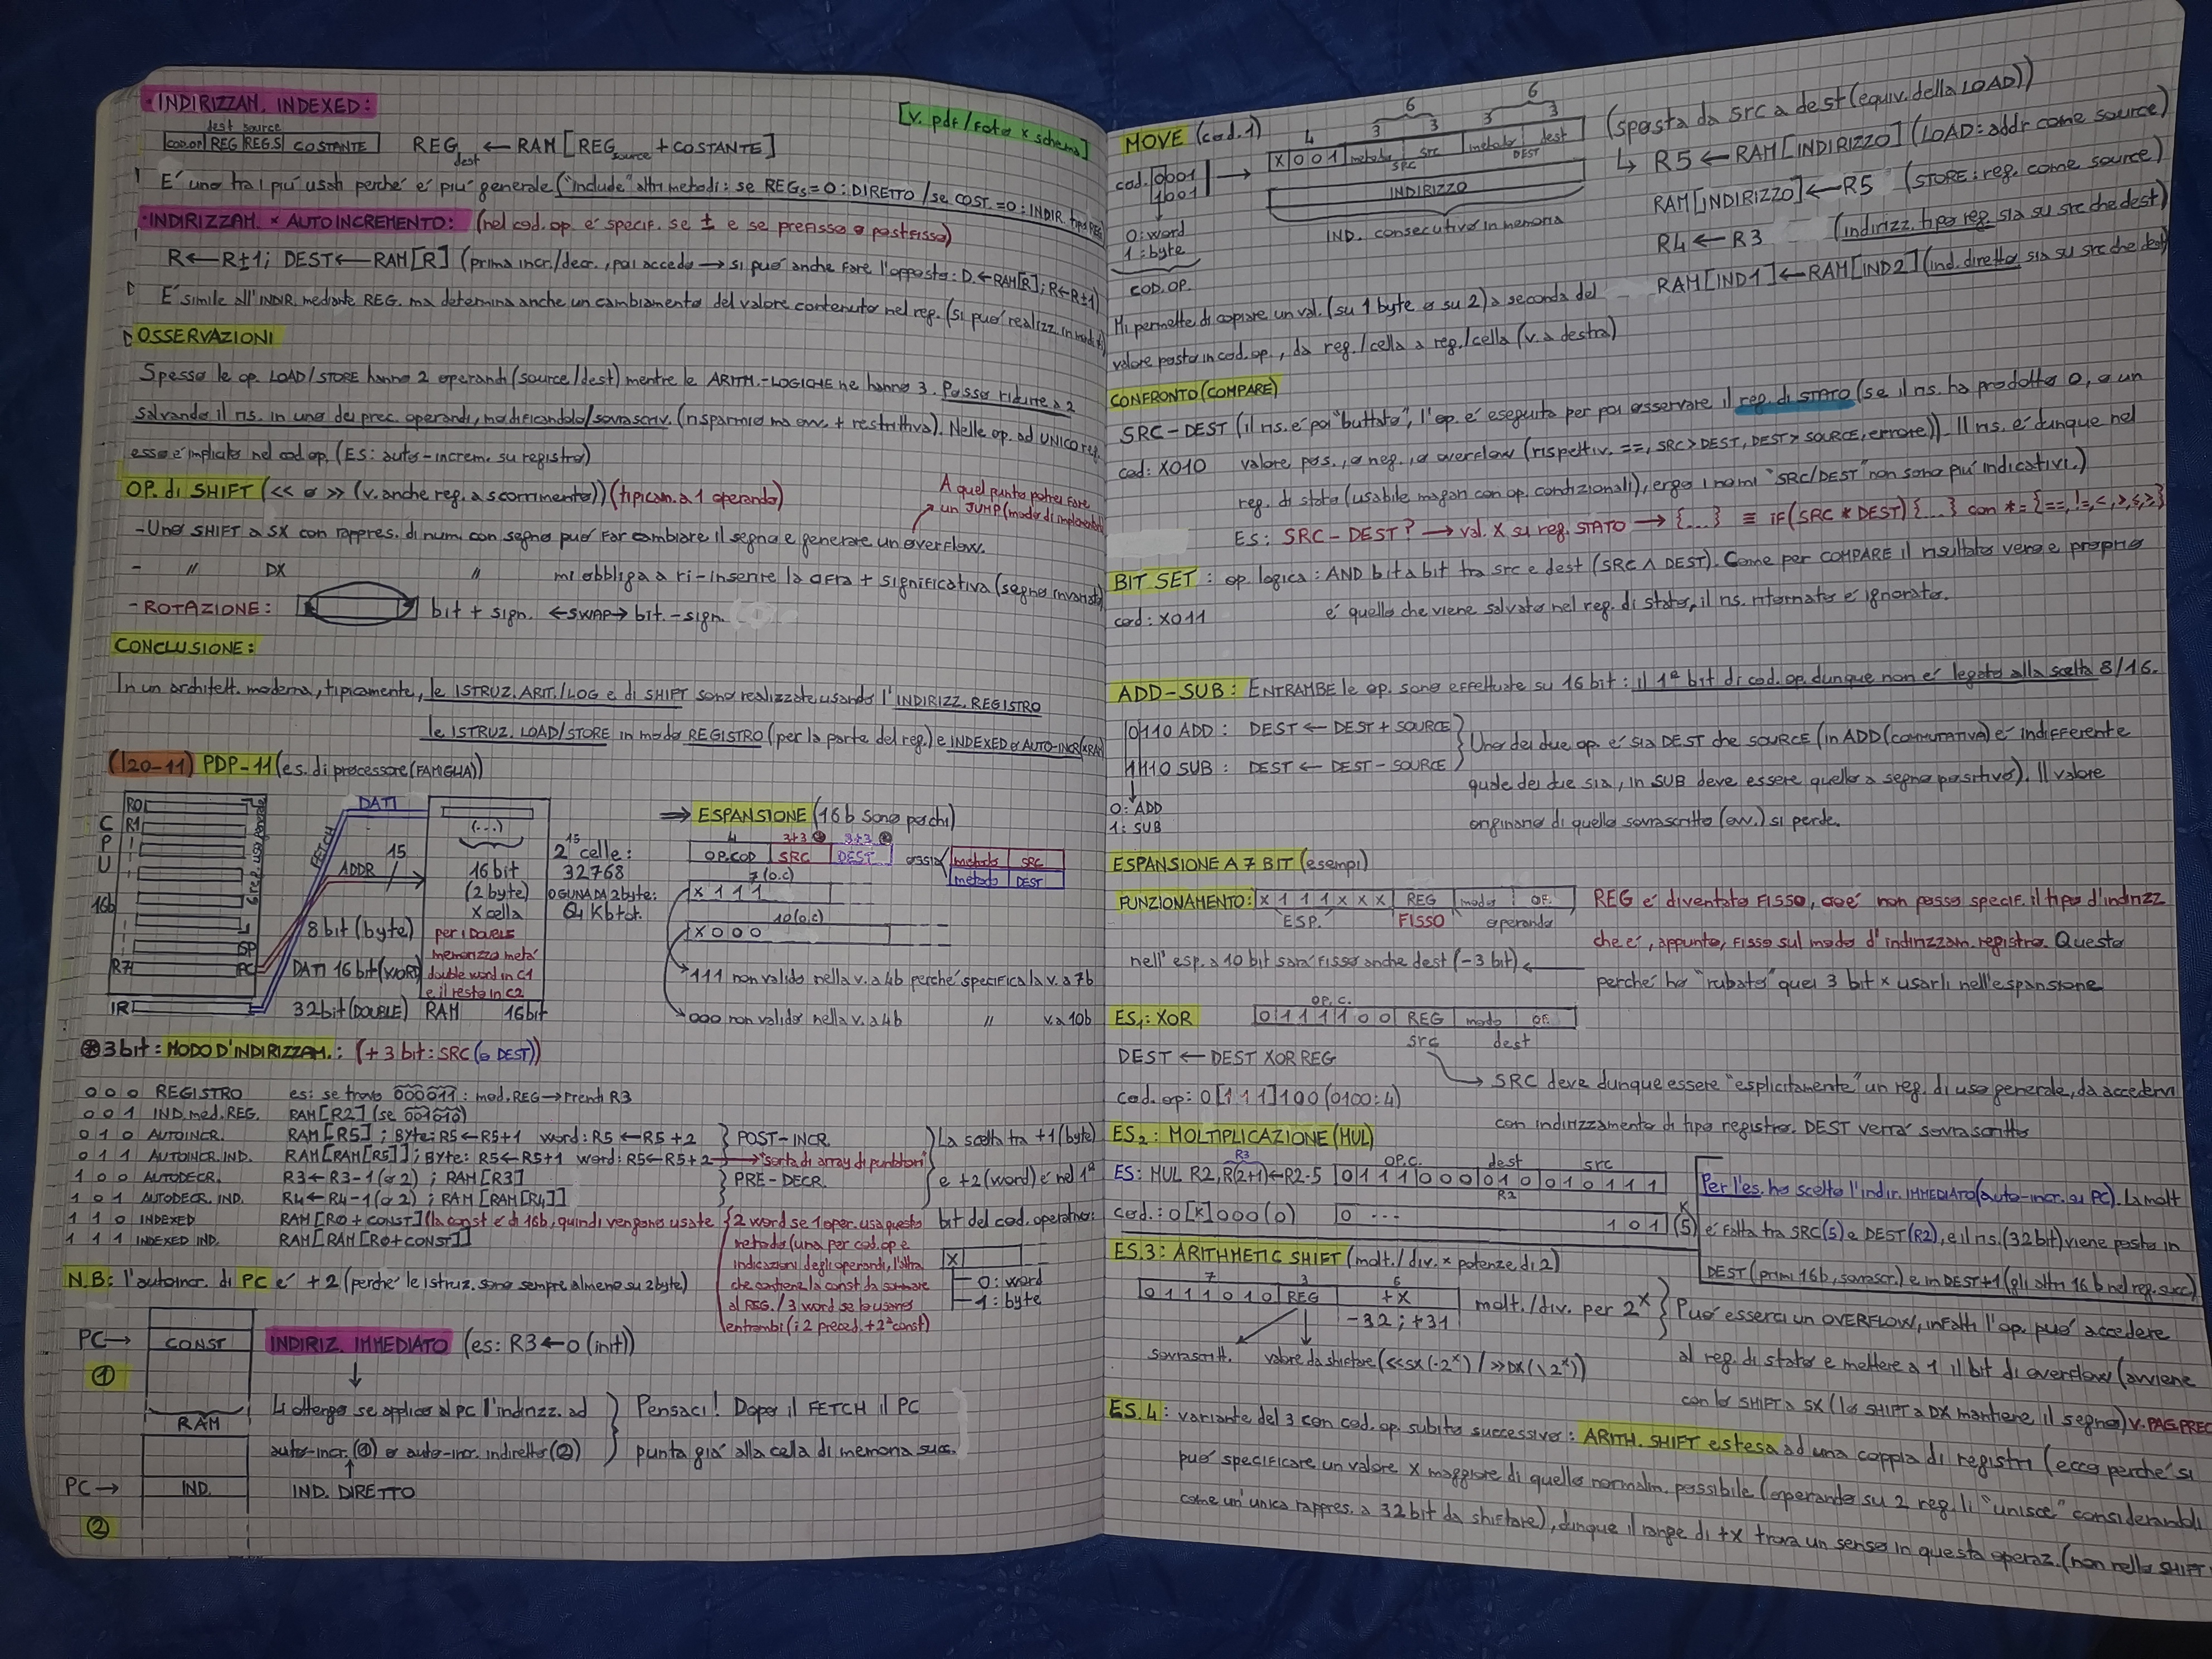 • INDIRIZZAM. INDEXED:
[v. pdf/foto x schema]
dest source
COD.OP REG REGS COSTANTE
REGdest ← RAM[REGsource + COSTANTE]
! E' uno tra i più usati perché è più generale ("include" altri metodi: se REGs=0: DIRETTO / se COST.=0: INDIR. tipo REG)
• INDIRIZZAM. x AUTOINCREMENTO: (nel cod. op. è specif. se ± e se prefisso o postfisso)
R ← R±1; DEST ← RAM[R] (prima incr./decr., poi accedo → si può anche fare l'opposto: D.←RAM[R]; R←R±1)
E' simile all'INDIR. mediante REG. ma determina anche un cambiamento del valore contenuto nel reg. (si può realizz. in
OSSERVAZIONI
Spesso le op. LOAD/STORE hanno 2 operandi (source/dest) mentre le ARITM.-LOGICHE ne hanno 3. Posso ridurre a 2
salvando il ris. in uno dei prec. operandi, modificandolo/sovrascriv. (risparmio ma ovv. + restrittiva). Nelle op. ad UNICO reg.
esso è implicito nel cod op. (ES: auto-increm. su registro)
OP. di SHIFT (<< o >> (v. anche reg. a scorrimento)) (tipicam. a 1 operando)
A quel punto potrei fare
un JUMP (modo di
- Uno SHIFT a SX con rappres. di num. con segno può far cambiare il segno e generare un overflow.
- " DX " mi obbliga a ri-inserire la cifra + significativa (segno invariato)
- ROTAZIONE: bit + sign. ←SWAP→ bit. - sign.
CONCLUSIONE:
In un architett. moderna, tipicamente, le ISTRUZ. ARIT./LOG e di SHIFT sono realizzate usando l'INDIRIZZ. REGISTRO
le ISTRUZ. LOAD/STORE in modo REGISTRO (per la parte del reg.) e INDEXED o AUTO-INCR (x RAM)
(l20-11) PDP-11 (es. di processore (FAMIGLIA))
CPU
R0
R1
16b
SP
R7 PC
IR
DATI
FETCH
ADDR 15
8 bit (byte)
DATI 16 bit (WORD)
32 bit (DOUBLE)
(...)
16 bit
(2 byte)
x cella
per i DOUBLE
memorizzo metà
double word in C1
e il resto in C2
RAM 16 bit
2^15 celle:
32768
OGNUNA DA 2 byte:
64 Kb tot.
⇒ ESPANSIONE (16b sono pochi)
4 3+3 3+3
OP.COD SRC DEST ossia metodo SRC
metodo DEST
7 (o.c)
X 1 1 1
10 (o.c)
X 0 0 0
111 non valido nella v. a 4b perché specifica la v. a 7b
000 non valido nella v. a 4b " v. a 10b
3 bit: MODO D'INDIRIZZAM.: (+ 3 bit: SRC (o DEST))
0 0 0 REGISTRO es: se trovo 000011: mod. REG → Prendi R3
0 0 1 IND. med. REG. RAM[R2] (se 001010)
0 1 0 AUTOINCR. RAM[R5]; Byte: R5←R5+1 word: R5←R5+2 } POST-INCR.
0 1 1 AUTOINCR. IND. RAM[RAM[R5]]; Byte: R5←R5+1 word: R5←R5+2 → "sorta di array di puntatori"
1 0 0 AUTODECR. R3←R3-1 (o 2); RAM[R3] } PRE-DECR.
1 0 1 AUTODECR. IND. R4←R4-1 (o 2); RAM[RAM[R4]]
1 1 0 INDEXED RAM[R0+CONST] (la const è di 16b, quindi vengono usate
1 1 1 INDEXED IND. RAM[RAM[R0+CONST]]
2 word se 1 oper. usa questo
metodo (una per cod. op e
indicazioni degli operandi, l'altra
che contiene la const da sommare
al REG. / 3 word se lo usano
entrambi (i 2 preced. + 2ª const)
La scelta tra +1 (byte)
e +2 (word) è nel 1°
bit del cod. operativo:
X
0: word
1: byte
N.B: l'autoincr. di PC è +2 (perché le istruz. sono sempre almeno su 2 byte)
PC→ CONST
①
RAM
PC→ IND.
②
INDIRIZ. IMMEDIATO (es: R3←0 (init))
Lo ottengo se applico al PC l'indirizz. ad
auto-incr. (①) o auto-incr. indiretto (②)
IND. DIRETTO
Pensaci! Dopo il FETCH il PC
punta già alla cella di memoria succ.
MOVE (cod. 1)
cod. 0001
1001
0: word
1: byte
COD. OP.
4 6 6
3 3 3 3
X 0 0 1 metodo src metodo dest
SRC DEST
INDIRIZZO
IND. consecutivo in memoria
(sposta da src a dest (equiv. della LOAD))
↳ R5 ← RAM[INDIRIZZO] (LOAD: addr come source)
RAM[INDIRIZZO] ← R5 (STORE: reg. come source)
R4 ← R3 (indirizz. tipo reg. sia su src che dest)
RAM[IND1] ← RAM[IND2] (ind. diretto sia su src che dest)
Mi permette di copiare un val. (su 1 byte o su 2) a seconda del
valore posto in cod. op., da reg./cella a reg./cella (v. a destra)
CONFRONTO (COMPARE)
SRC - DEST (il ris. è poi "buttato", l'op. è eseguita per poi osservare il reg. di STATO (se il ris. ha prodotto 0, o un
cod: X010 valore pos., o neg., o overflow (rispettiv. ==, SRC>DEST, DEST>SOURCE, errore)). Il ris. è dunque nel
reg. di stato (usabile magari con op. condizionali), ergo i nomi "SRC/DEST" non sono più indicativi.)
ES: SRC - DEST? → val. X su reg. STATO → {...} ≡ if(SRC * DEST){...} con *={==,!=,<,>,≤,≥}
BIT SET: op. logica: AND bit a bit tra src e dest (SRC ∧ DEST). Come per COMPARE il risultato vero e proprio
cod: X011 è quello che viene salvato nel reg. di stato, il ris. ritornato è ignorato.
ADD-SUB: ENTRAMBE le op. sono effettuate su 16 bit: il 1° bit di cod. op. dunque non è legato alla scelta 8/16.
0110 ADD: DEST ← DEST + SOURCE
1110 SUB: DEST ← DEST - SOURCE
0: ADD
1: SUB
Uno dei due op. è sia DEST che SOURCE (in ADD (commutativa) è indifferente
quale dei due sia, in SUB deve essere quello a segno positivo). Il valore
originario di quello sovrascritto (ovv.) si perde.
ESPANSIONE A 7 BIT (esempi)
FUNZIONAMENTO: X 1 1 1 X X X REG modo OP.
ESP. FISSO operando
REG è diventato FISSO, cioè non posso specif. il tipo d'indirizz
che è, appunto, fisso sul modo d'indirizzam. registro. Questo
nell'esp. a 10 bit sarà fisso anche dest (-3 bit)
perché ho "rubato" quei 3 bit x usarli nell'espansione
ES1: XOR
OP. C.
0 1 1 1 1 0 0 REG modo OP.
src dest
DEST ← DEST XOR REG
SRC deve dunque essere "esplicitamente" un reg. di uso generale, da accedervi
cod. op: 0[111]100 (0100: 4)
con indirizzamento di tipo registro. DEST verrà sovrascritto
ES2: MOLTIPLICAZIONE (MUL)
R3
ES: MUL R2, R(2+1)←R2·5
OP.C. dest src
0 1 1 1 0 0 0 0 1 0 0 1 0 1 1 1
R2
cod.: 0[x]000 (0)
0 ... 1 0 1 (5)
Per l'es. ho scelto l'indir. IMMEDIATO (auto-incr. su PC). La molt
è fatta tra SRC (5) e DEST (R2), e il ris. (32 bit) viene posto in
DEST (primi 16b, sovrascr.) e in DEST+1 (gli altri 16 b nel reg. succ)
ES.3: ARITHMETIC SHIFT (molt./div. x potenze di 2)
7 3 6
0 1 1 1 0 1 0 REG ±X
-32; +31
sovrascritt. valore da shiftare (<<SX (·2^x) / >>DX (\2^x))
molt./div. per 2^x
Può esserci un OVERFLOW, infatti l'op. può accedere
al reg. di stato e mettere a 1 il bit di overflow (avviene
con lo SHIFT a SX (lo SHIFT a DX mantiene il segno) V. PAG. PREC
ES.4: variante del 3 con cod. op. subito successivo: ARITH. SHIFT estesa ad una coppia di registri (ecco perché si
può specificare un valore X maggiore di quello normalm. possibile (operando su 2 reg. li "unisce" considerandoli
come un'unica rappres. a 32 bit da shiftare), dunque il range di ±X trova un senso in questa operaz. (non nello SHIFT